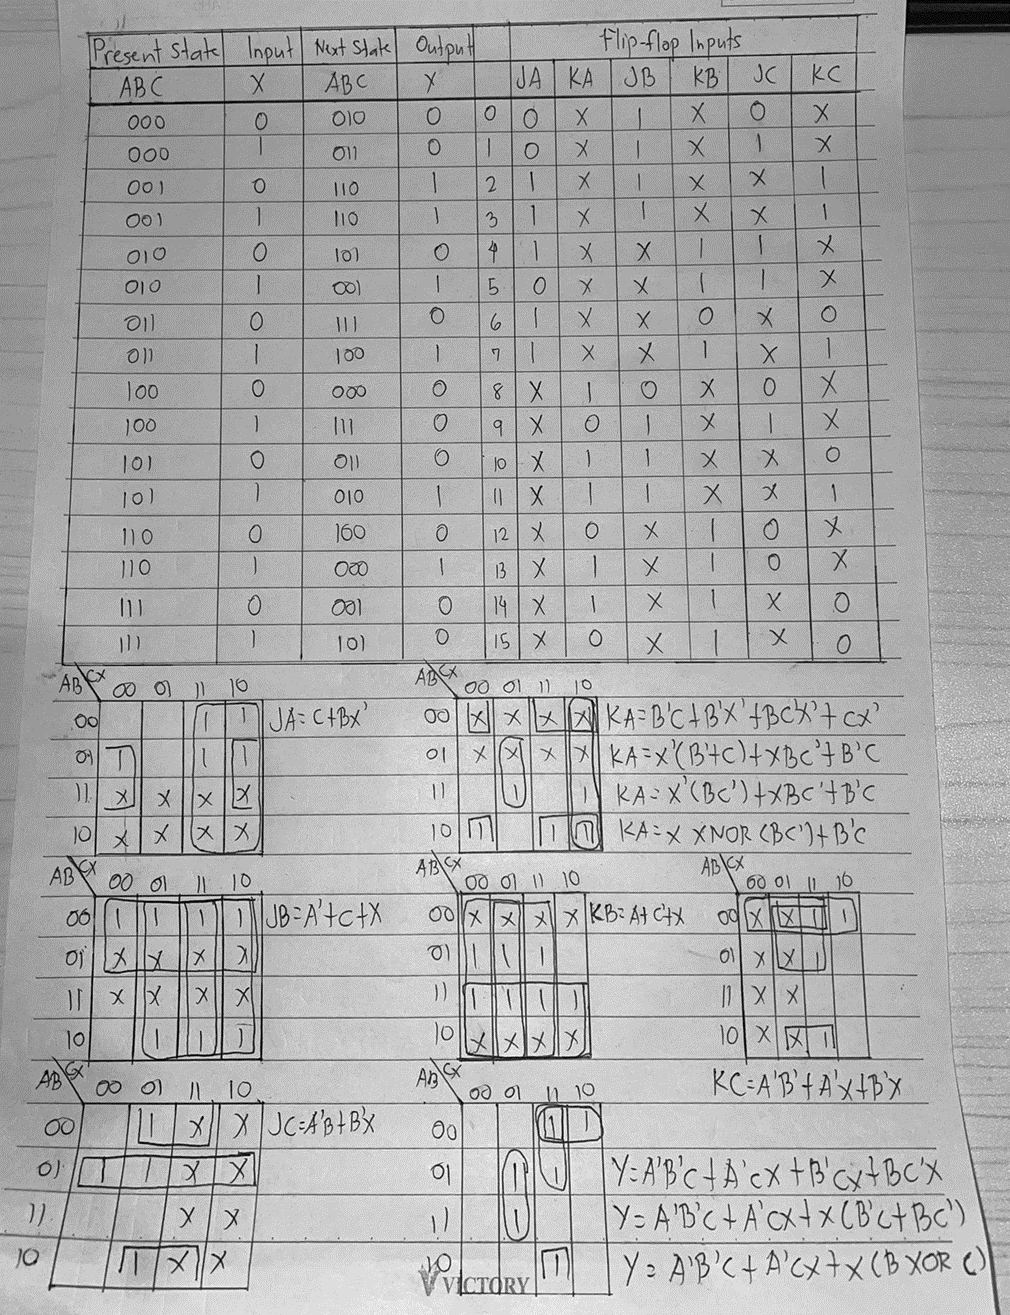 Flip-flop Inputs
Present State Input Next State Output
ABC X ABC X JA KA JB KB JC KC
000 0 010 0 0 0 X 1 X 0 X
000 1 011 0 1 0 X 1 X 1 X
001 0 110 1 2 1 X 1 X X 1
001 1 110 1 3 1 X 1 X X 1
010 0 101 0 4 1 X X 1 1 X
010 1 001 1 5 0 X X 1 1 X
011 0 111 0 6 1 X X 0 X 0
011 1 100 1 7 1 X X 1 X 1
100 0 000 0 8 X 1 0 X 0 X
100 1 111 0 9 X 0 1 X 1 X
101 0 011 0 10 X 1 1 X X 0
101 1 010 1 11 X 1 1 X X 1
110 0 100 0 12 X 0 X 1 0 X
110 1 000 1 13 X 1 X 1 0 X
111 0 001 0 14 X 1 X 1 X 0
111 1 101 0 15 X 0 X 1 X 0
AB CX 00 01 11 10
00 1 1 JA=C+BX'
01 1 1 1
11 X X X X
10 X X X X
AB CX 00 01 11 10
00 X X X X KA=B'C+B'X'+BC'X'+CX'
01 X X X X KA=X'(B'+C)+XBC'+B'C
11 1 1 KA=X'(BC')+XBC'+B'C
10 1 1 1 KA=X XNOR (BC')+B'C
AB CX 00 01 11 10
00 1 1 1 1 JB=A'+C+X
01 X X X X
11 X X X X
10 1 1 1
AB CX 00 01 11 10
00 X X X X KB=A+C'+X
01 1 1 1
11 1 1 1 1
10 X X X X
AB CX 00 01 11 10
00 X X 1 1
01 X X 1
11 X X
10 X X 1
KC=A'B'+A'X+B'X
AB CX 00 01 11 10
00 1 X X JC=A'B+B'X
01 1 1 X X
11 X X
10 1 X X
AB CX 00 01 11 10
00 1 1
01 1 1 Y=A'B'C+A'CX+B'CX+BC'X
11 1 Y=A'B'C+A'CX+X(B'C+BC')
10 1 Y=A'B'C+A'CX+X(B XOR C)
VICTORY